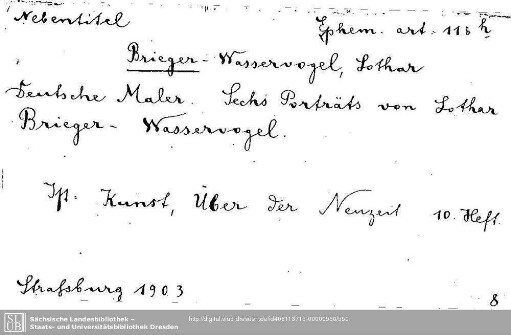 Nebentitel
Ephem. art. 116 h
Brieger-Wasservogel, Lothar
Deutsche Maler. Sechs Porträts von Lothar
Brieger-Wasservogel.
Kunst, Über der Neuzeit 10. Heft.
Strassburg 1903
8
Sächsische Landesbibliothek –
Staats- und Universitätsbibliothek Dresden